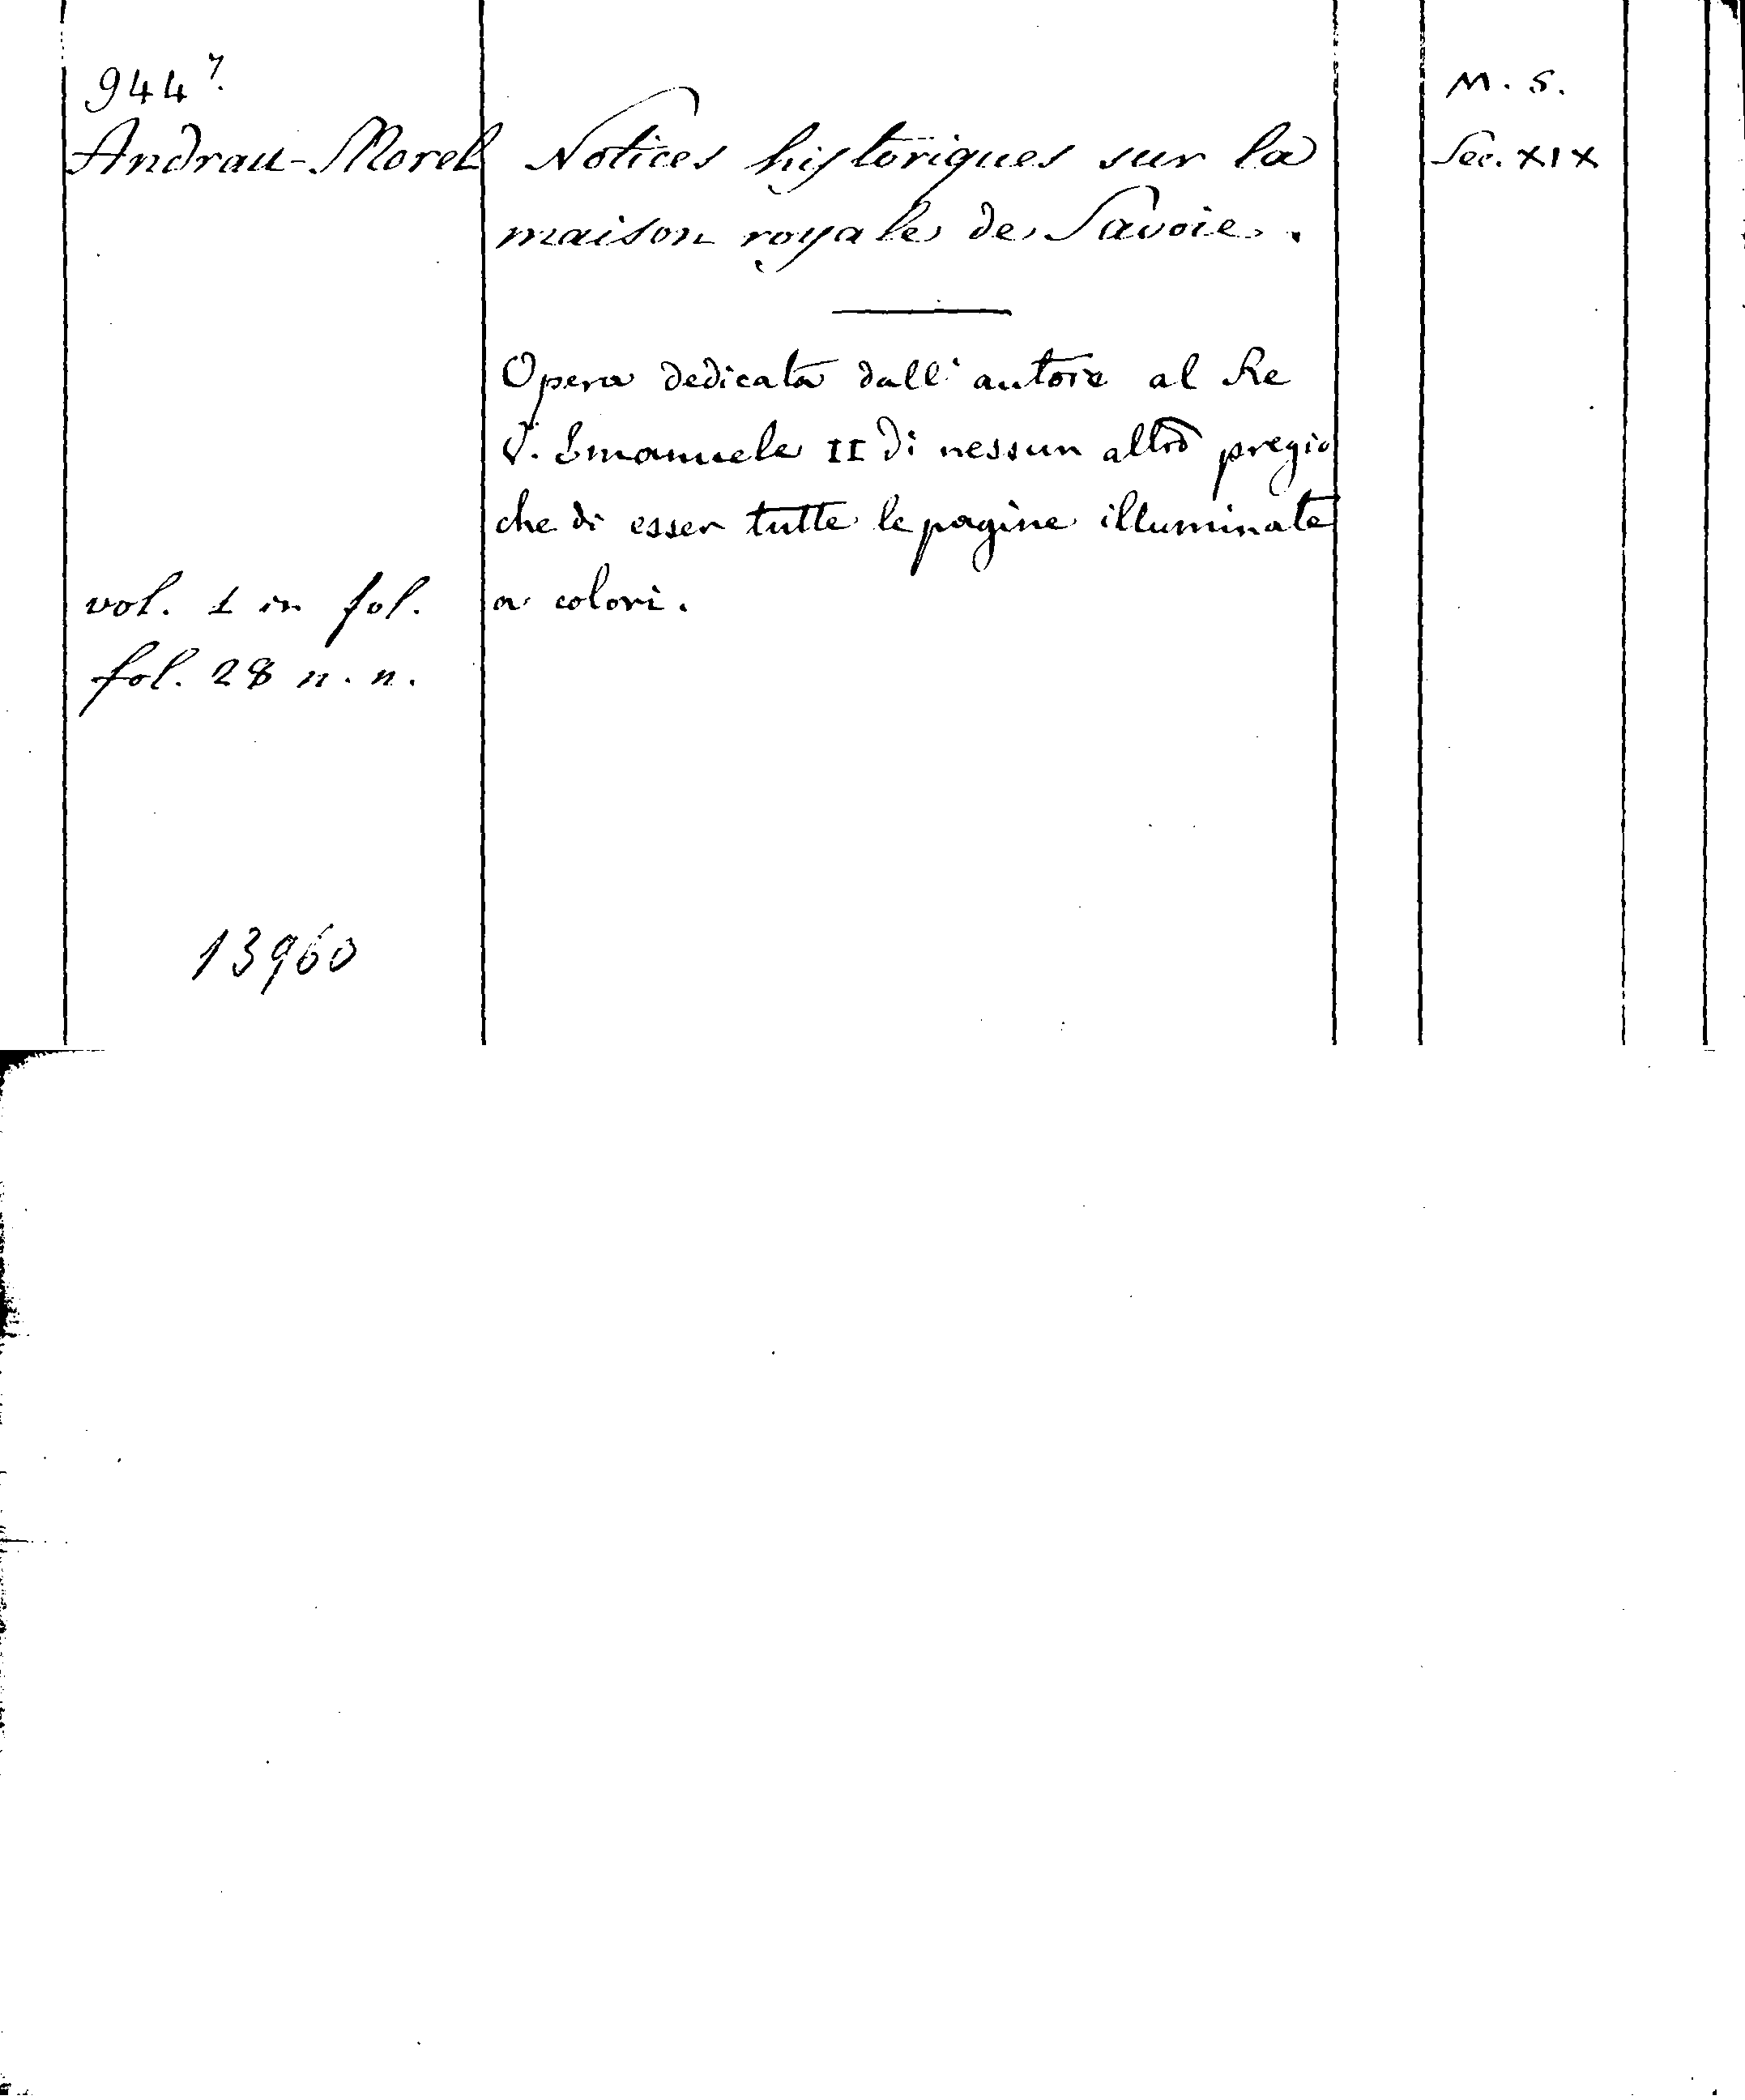 944⁷.
Andrau-Morel
Notices historiques sur la
maison royale de Savoie.
Opera dedicata dall'autore al Re
V. Emanuele II di nessun altro pregio
che di esser tutte le pagine illuminate
a colori.
vol. 1 in fol.
fol. 28 n. n.
13960
M. S.
Sec. XIX